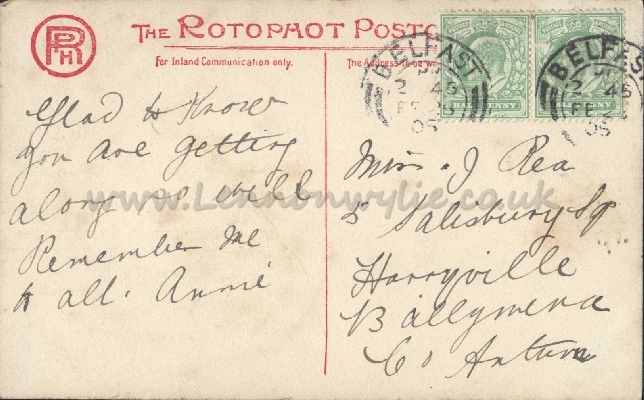 THE ROTOPHOT POSTC
RPH
For Inland Communication only.
The Address to be wr
BELFAST
2 45
FE
05
HALFPENNY
BELFAS
2 45
FE
05
PENNY
Glad to Know
you are getting
along so well
Remember me
to all. Annie
www.Lennonwylie.co.uk
Miss J Rea
5 Salisbury Sq
Harryville
Ballymena
Co Antrim